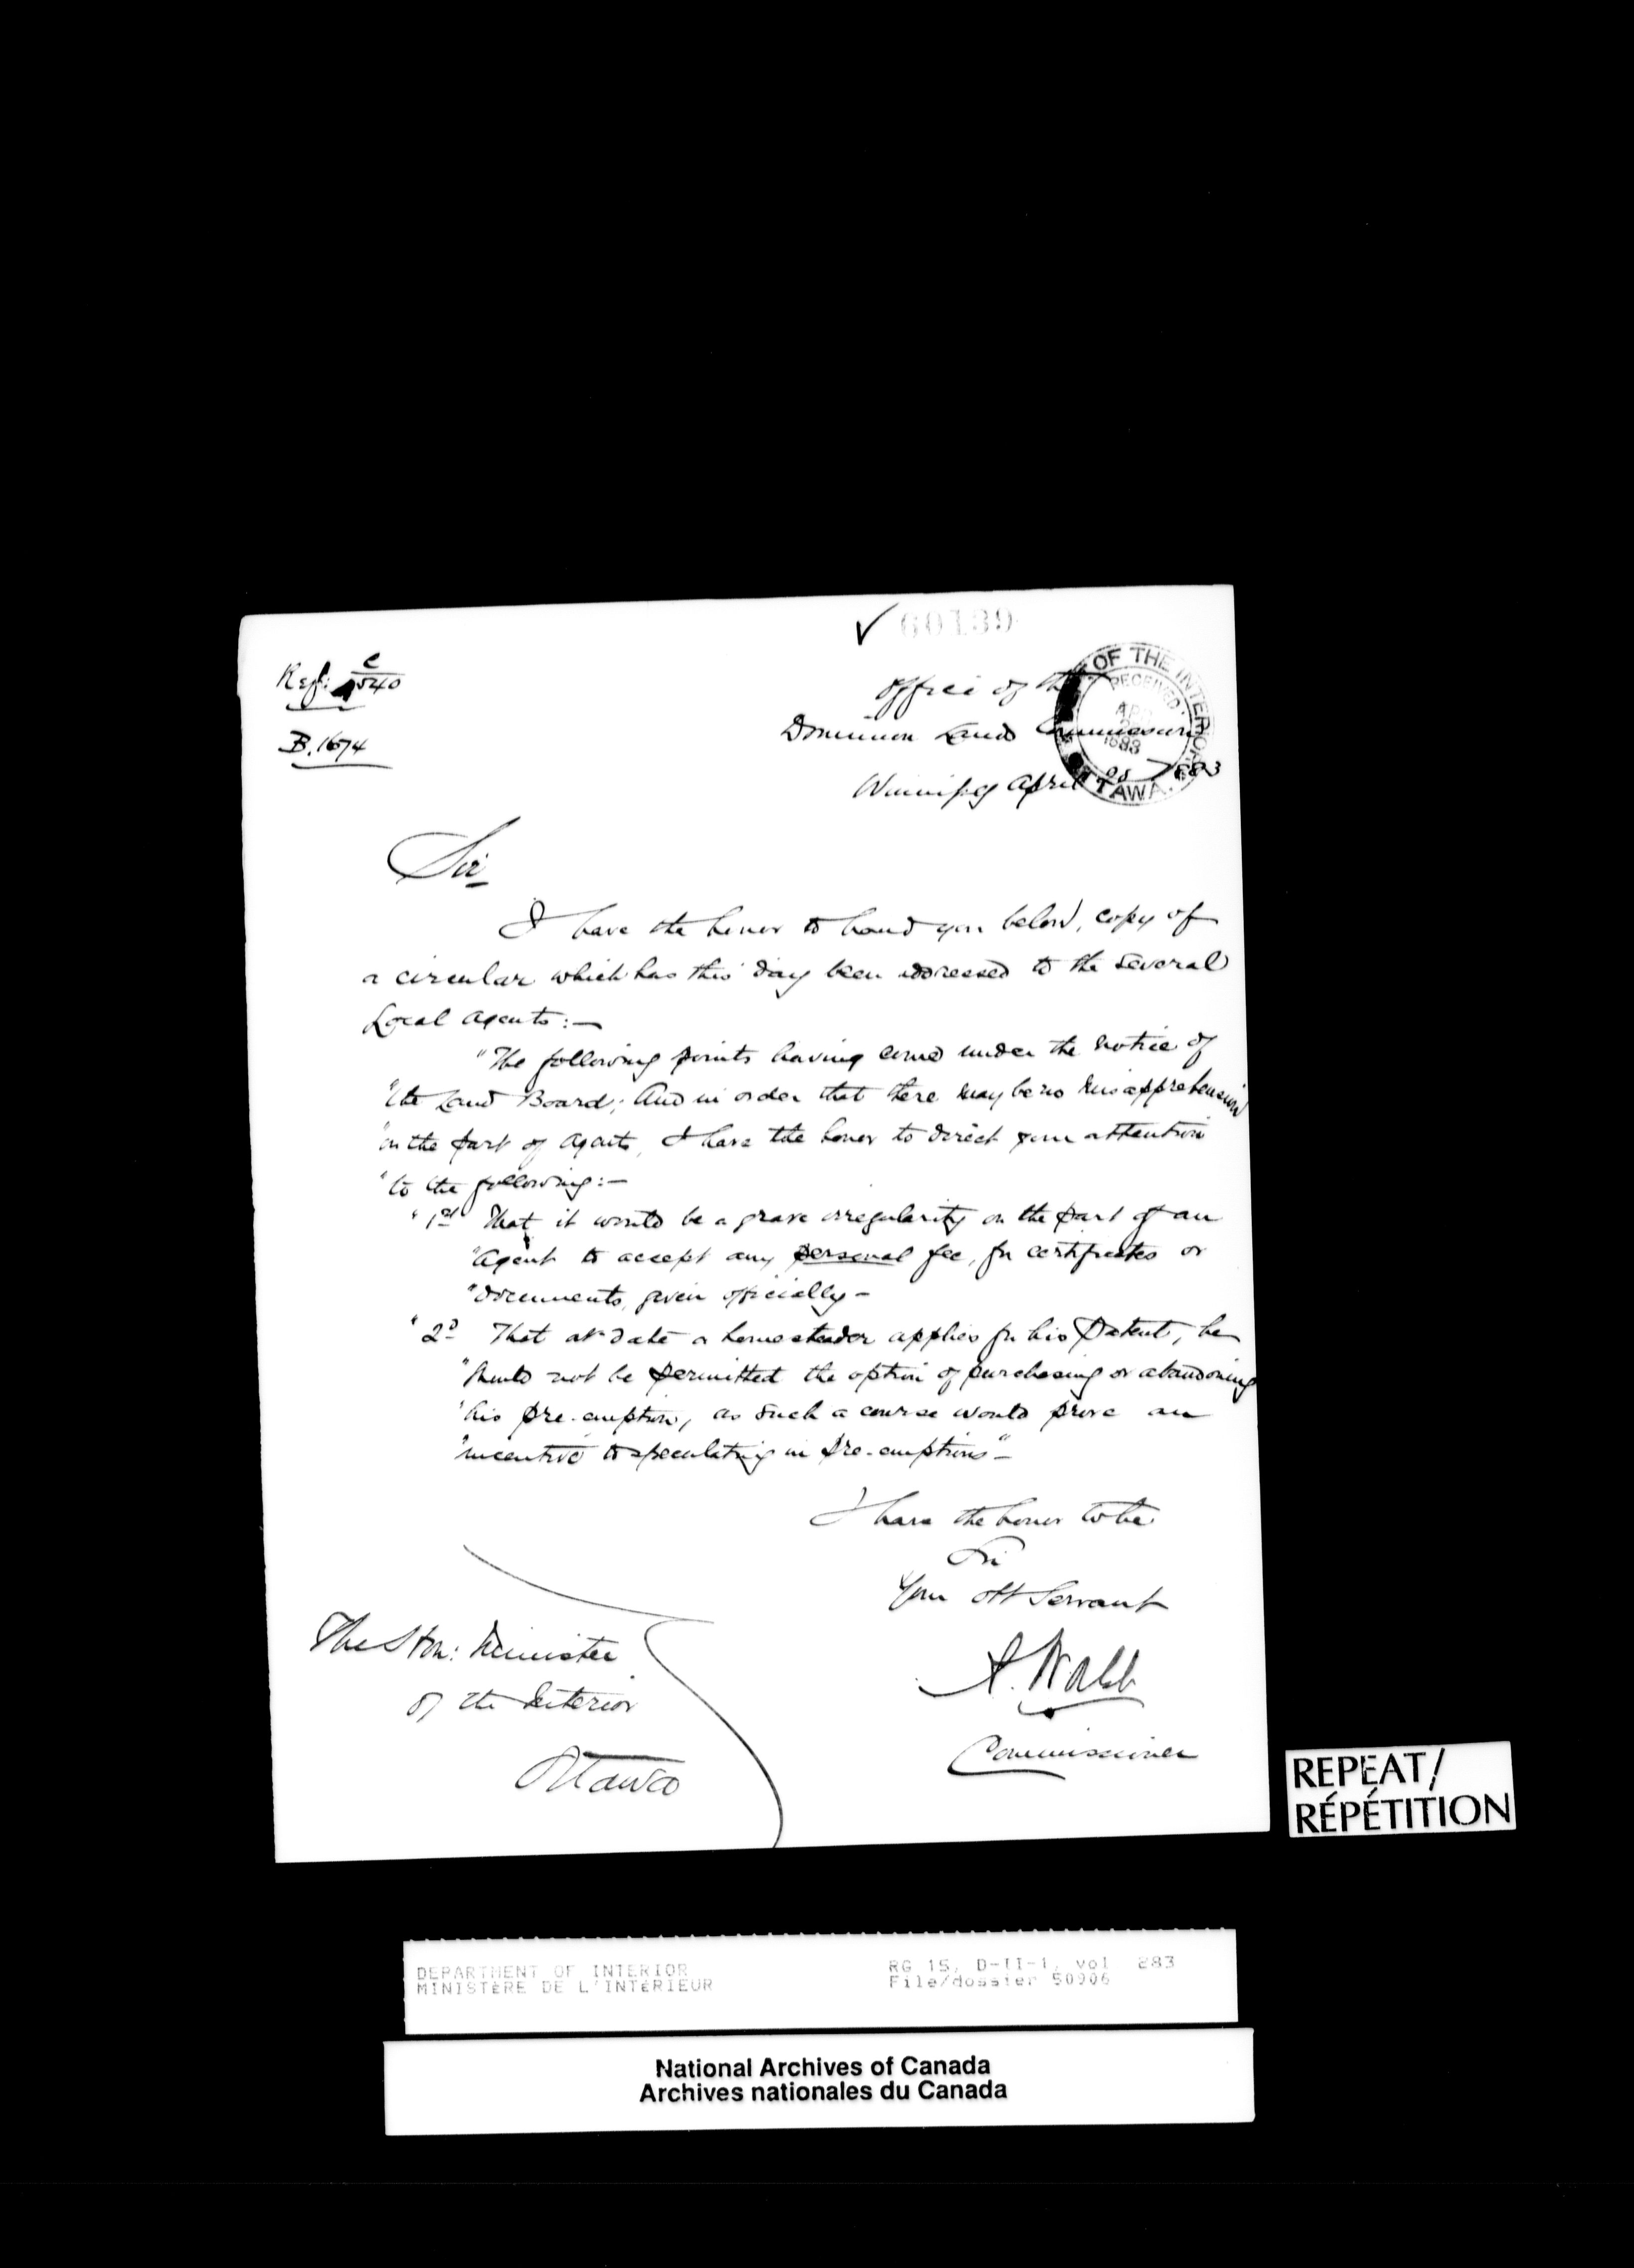 ✓ 60139
Ref: C
1540
B. 1674
Office of the
Dominion Lands Commission
Winnipeg April 1883
OF THE INTERIOR
RECEIVED
1883
OTTAWA
Sir
I have the honor to hand you below, copy of
a circular which has this day been addressed to the several
Local Agents:—
"The following points having come under the notice of
"the Land Board; and in order that there may be no misapprehension
"on the part of Agents, I have the honor to direct your attention
"to the following:—
"1st That it would be a grave irregularity on the part of an
"Agent to accept any personal fee, for certificates or
"documents, given officially —
"2d That at date a homesteader applies for his Patent, he
"should not be permitted the option of purchasing or abandoning
"his pre-emption, as such a course would prove an
"incentive to speculating in pre-emptions" —
I have the honor to be
Sir
Your Obt Servant
A. Walsh
Commissioner
The Hon: Minister
of the Interior
Ottawa
REPEAT/
RÉPÉTITION
DEPARTMENT OF INTERIOR RG 15, D-II-1, vol 283
MINISTÈRE DE L'INTÉRIEUR File/dossier 50906
National Archives of Canada
Archives nationales du Canada